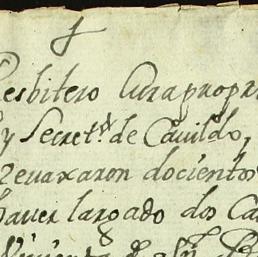 esbitero Cura propr
y Secret.º de Cavildo,
revaxaron docientos
haver largado dos Ca